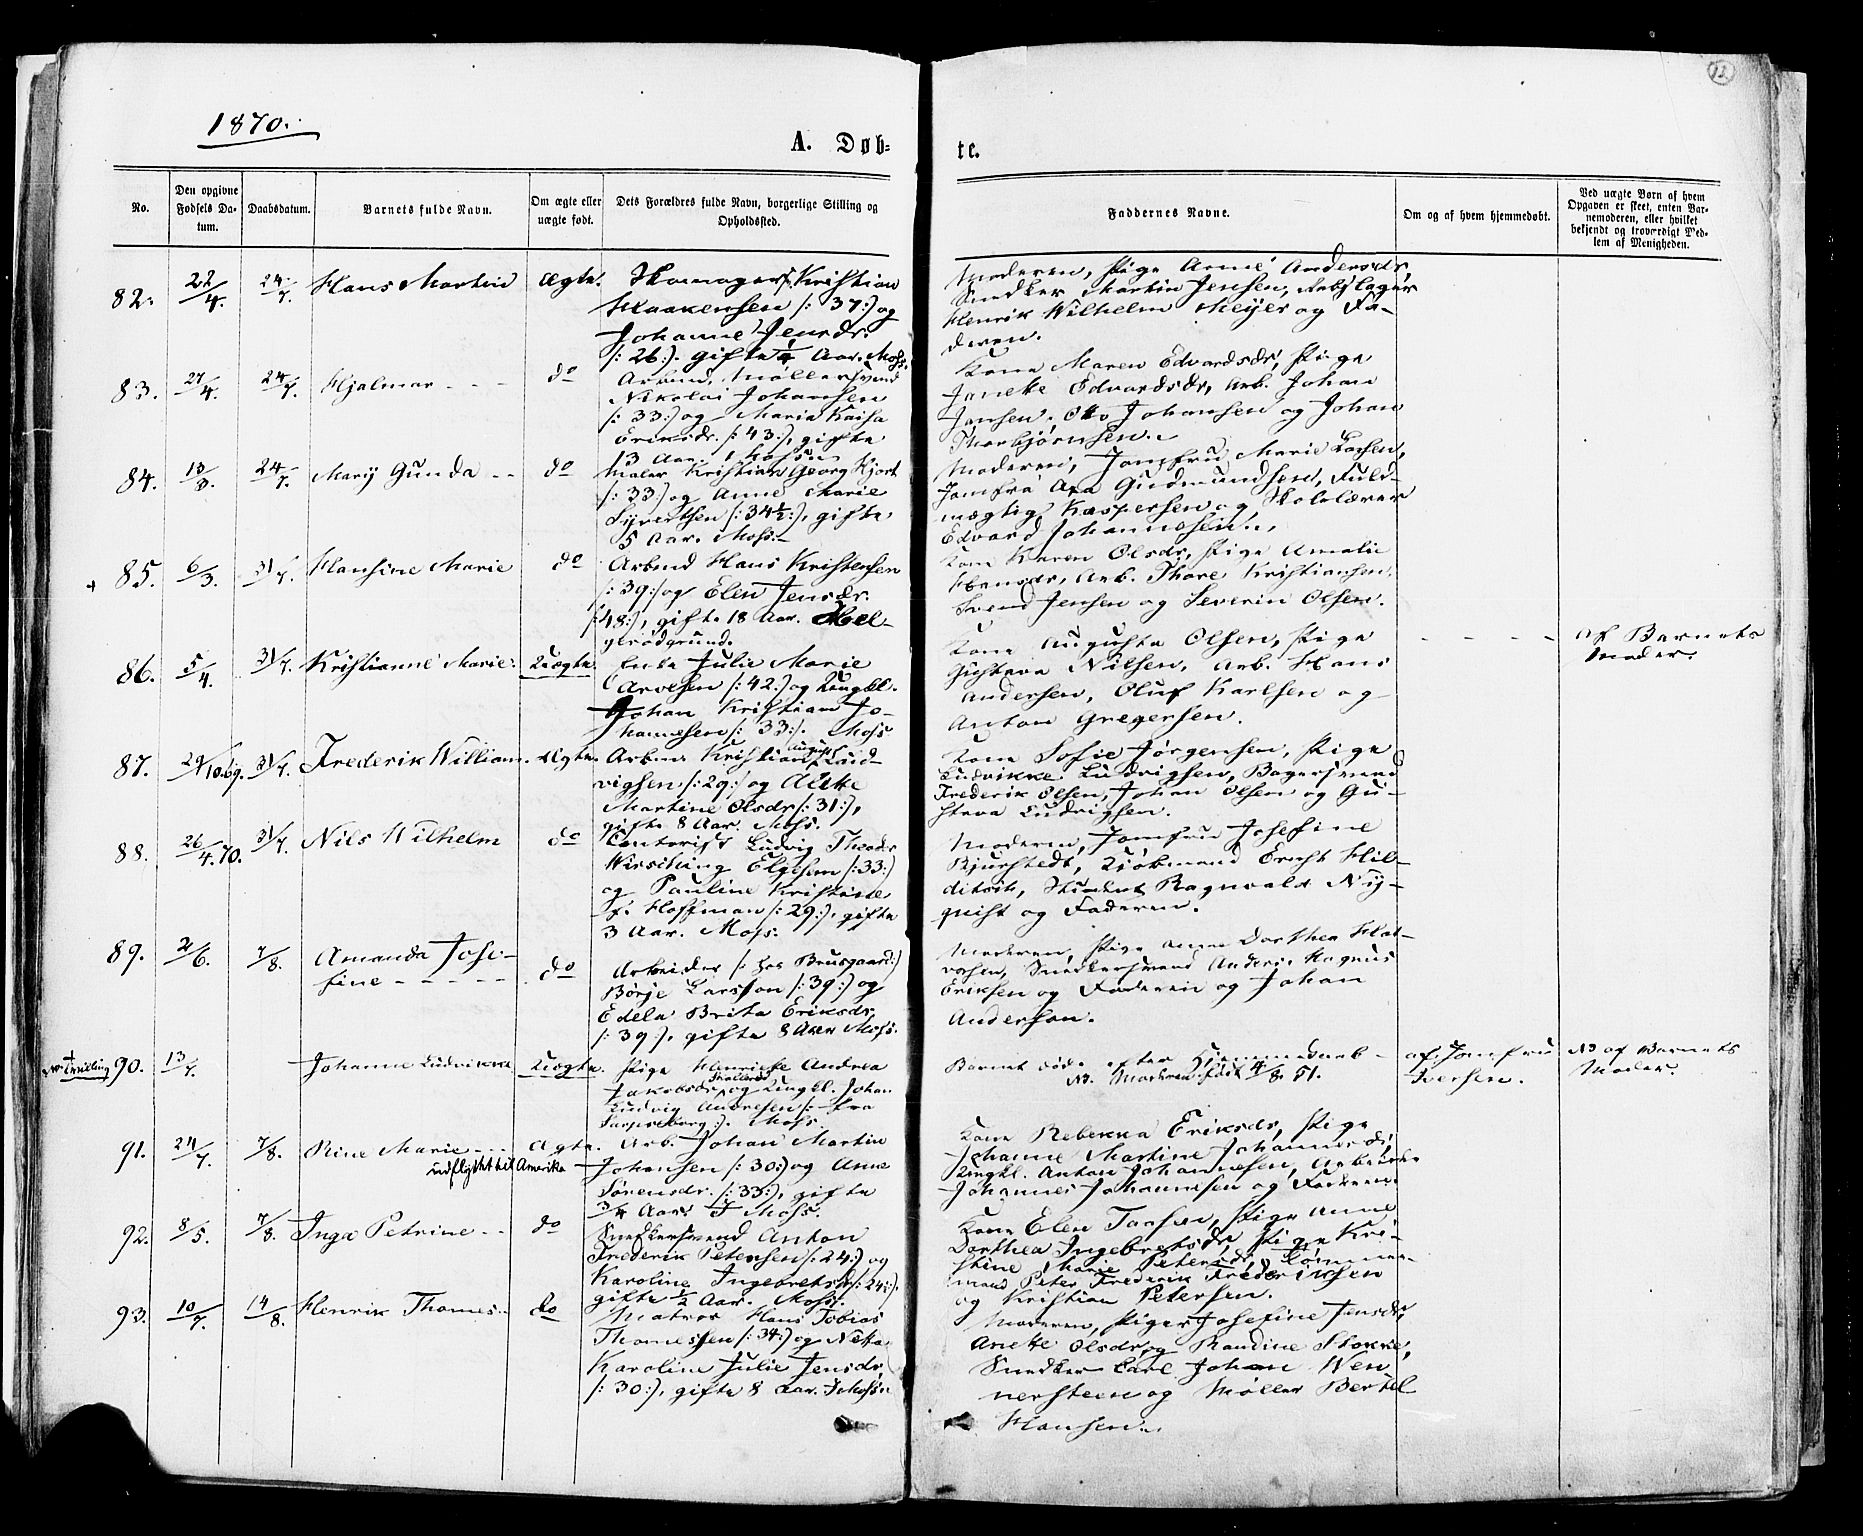 12
1870.
A. Døb=
te.
No.
Den opgivne
Fødsels Da-
tum.
Daabsdatum.
Barnets fulde Navn.
Om ægte eller
uægte født.
Dets Forældres fulde Navn, borgerlige Stilling og
Opholdssted.
Faddernes Navne.
Om og af hvem hjemmedøbt.
Ved uægte Børn af hvem
Opgaven er skeet, enten Bar-
nemoderen, eller hvilket
bekjendt og troværdigt Med-
lem af Menigheden.
82. 22/4. 24/7. Hans Martin Ægte. Skomager Kristian
Haakensen /: 37:) og
Johanne Jensdr.
/: 26:). gifte 1/4 Aar. Moss.
Moderen, Pige Anne Andersdr,
Snedker Martin Jensen,
Henrik Wilhelm Meyer og Fa-
deren.
83. 27/4. 24/7. Hjalmar - - - do
Arbmd, Møllersvend
Nikolai Johansen
/: 33:) og Maria Kaisa
Eriksdr. /: 43:), gifte
13 Aar. Moss.
Kone Maren Edvardsdr, Pige
Janeke Edvardsdr, Arb. Johan
Jansen, Otto Johansen og Johan
Thorbjørnsen.
84. 13/3. 24/7. Mary Gunda - - do
Maler Kristian Georg Hjort
/: 33:) og Anne Marie
Syvertsen /: 34½:), gifte
5 Aar. Moss.
Moderen, Jomfru Marie Larsen,
Jomfru Gudmundsen, Fuld-
mægtig Kaspersen og Skolelærer
Edvard Johannesen.
+ 85. 6/3. 31/7. Hansine Marie do
Arbmd Hans Kristensen
/: 39:) og Elen Jensdr.
/: 48:), gifte 18 Aar. Hel-
gerødgrund.
Kone Karen Olsdr, Pige Amalie
Hansdr, Arb. Thore Kristiansen,
Svend Jensen og Severin Olsen.
86. 5/4. 31/7. Kristianne Marie. Uægte.
Enke Julie Marie
Arvesen /: 42:) og Ungkl.
Johan Kristian Jo-
hannesen /: 33:). Moss
Kone Augusta Olsen, Pige
Gustava Nilsen, Arb. Hans
Andersen, Oluf Karlsen og
Anton Gregersen.
- - - -
af Barnets
Moder.
87. 29/10.69. 31/7. Frederik William. Ægte.
Arbm. Kristian August Lud-
vigsen /: 29:) og Alette
Martine Olsdr /: 31:),
gifte 8 Aar. Moss.
Kone Sofie Jørgensen, Pige
Ludvikke Ludvigsen, Bagersvend
Frederik Olsen, Johan Olsen og Gu-
stava Ludvigsen.
88. 26/4.70. 31/7. Nils Wilhelm do
Contorist Ludvig Theodr
Elgesem /: 33:)
og Pauline Kristine
f. Hoffman /: 29:), gifte
3 Aar. Moss.
Moderen, Jomfru Josefine
Bjurstedt, Ernst Hil-
ditsch, Student Ragnvald Ny-
quist og Faderen.
89. 2/6. 7/8. Amanda Jose-
fine - - - - - do
Arbeider /: hos Brusgaard:)
Børje Larsson /: 39:) og
Edela Brita Eriksdr,
/: 39:), gifte 8 Aar Moss.
Moderen, Pige Anne Dorthea Hal-
vorsen, Snedkersvend Anders Magnus
Eriksen og Faderen og Johan
Anderson.
+
Tvilling 90. 13/7. Johanne Ludvikka Uægte.
Pige Henriette Andrea
Jakobsdr og Ungkl. Johan
Ludvig Andresen /: fra
Sarpsborg:). Moss.
Barnet døde efter Hjemmedaab -
NB. Moderen født 4/8 51.
af Jomfru
Iversen.
NB af Barnets
Moder.
91. 24/7. 7/8. Rine Marie - - - Ægte.
udflyttet til Amerika
Arb. Johan Martin
Johansen /: 30:) og Anne
Sørensdr. /: 33:), gifte
3/4 Aar. I Moss.
Kone Rebekka Eriksdr, Pige
Johanne Martine Johannesdr,
Ungkl. Anton Johannesen, Arbeider
Johannes Johannesen og Faderen.
92. 8/5. 7/8. Inga Petrine - - do
Snedkersvend Anton
Frederik Petersen /: 24:) og
Karoline Ingebretsdr /: 24:).
gifte ½ Aar. Moss.
Kone Elen Pige Anne
Dorthea Ingebretsdr, Pige Kri-
stine Marie Petersdr, Tømmer-
mand Peter Frederik Frederiksen
og Kristian Petersen.
93. 10/7. 14/8. Henrik Thomas - do
Matros Hans Tobias
Thomesen /: 34:) og Netta
Karoline Julie Jensdr,
/: 30:), gifte 8 Aar. I Moss
Moderen, Piger Josefine Jensdr,
Anette Olsdr, og Randine Stokke,
Snedker Carl Johan Wen
nersteen og Møller Bertel
Hansen.